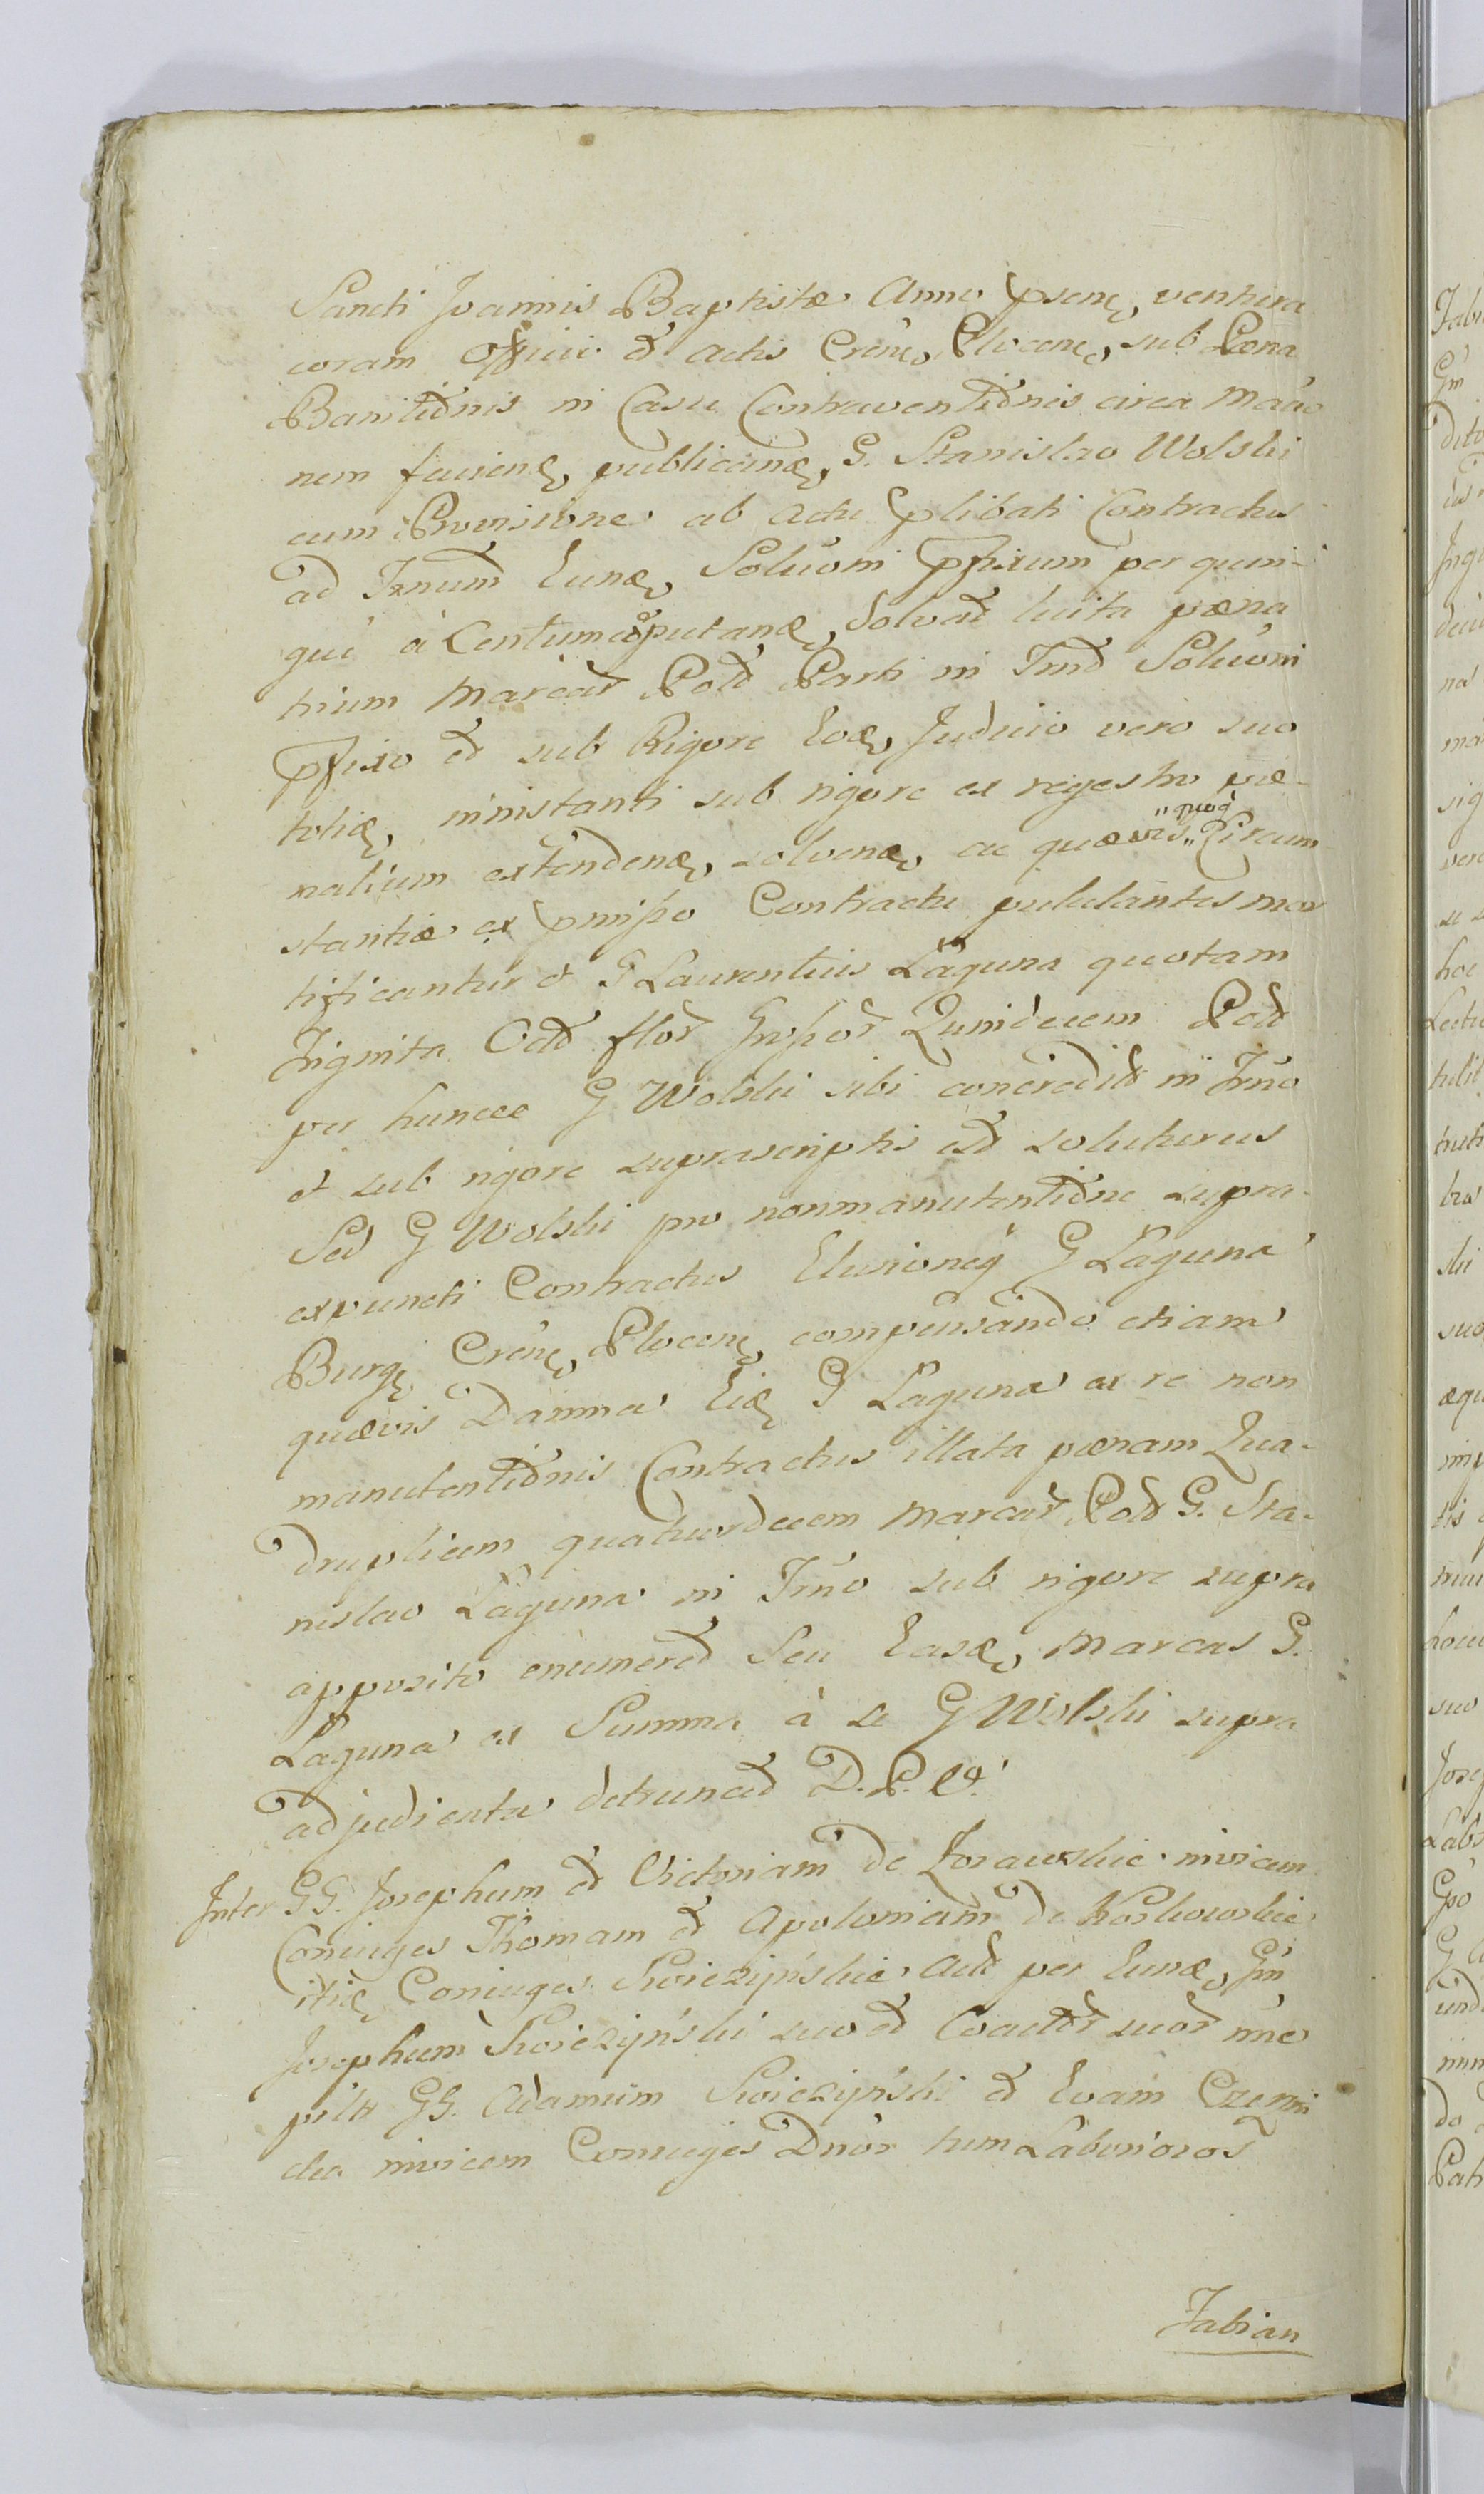 Sancti Joannis Baptistæ Anno psenę ventura
coram Officio et Actis Crênę Plocenę sub Pœna
Banitiõnis in Casu Contraventiõnis circa maûo
nem faciendę publicandę G. Stanislao Wolski
cum Provisione ab Actu plibati Contractus
ad Trnum Eundę Solûoni pfixum per quin-
que à Centum coputandę Solvat luita pœna
trium Marcar Pold Parti in Trnô Solûoni
pfixo et sub Rigore Eodę Judicio vero suo
totię ministanti sub rigore ex regestro pæ-
nalium extendendę, solvendę, ac quævis "quoq"
Circum
stantiæ ex pmisso Contractu pullulantes mor
tificantur et G Laurentius Laguna quotam
Triginta Octo flor Grossor Quindecem Pold
per huncce G Wolski sibi concredit in Trnô
et sub rigore suprascriptis est soluturus
Sed G Wolski pro nonmanutentiõne supra
expuncti Contractus Elusioneq G Laguna
Burgę Crênę Plocenę compensando etiam
quævis Damna Eidę G Laguna ex re non
manutentiõnis Contractus illata pœnam Qua-
druplicem quatuordecem Marcar Pold G. Sta-
nislao Laguna in Trnô sub rigore supra
apposito enumeret Seu Easdę Marcas G.
Laguna ex Summa à se G Wolski supra
adjudicata detruncet D. P. Et.
Inter GG. Josephum et Victoriam de Zorawskie invicem
Coniuges Thomam et Apoloniam de Koskowskie
itidę Coniuges Swiezyńskie Act per Eundę Gm
Josephum Swiezyński suo et Coactor suor nne
psltt GG. Adamum Swiezyński et Evam
invicem Coniuges Dnor tum Laboriosos
Fabian